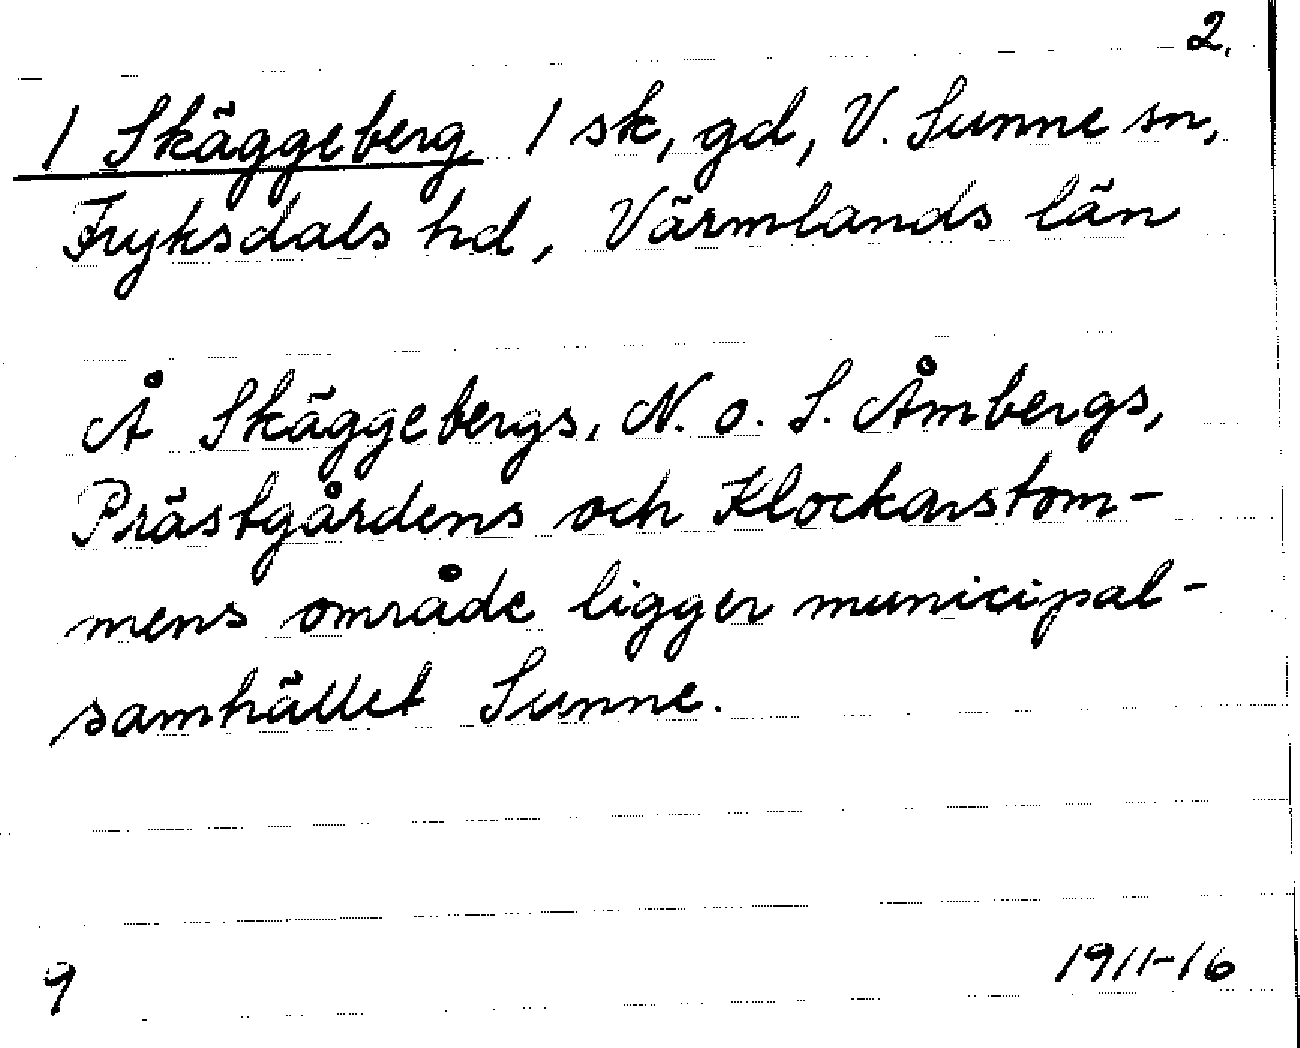 2.
/ Skäggeberg / sk, gd, V. Sunne sn,
Fryksdals hd, Värmlands län
Å Skäggebergs, N. o. S. Åmbergs,
Prästgårdens och Klockarstom-
mens område ligger municipal-
samhället Sunne.
9 1911-16